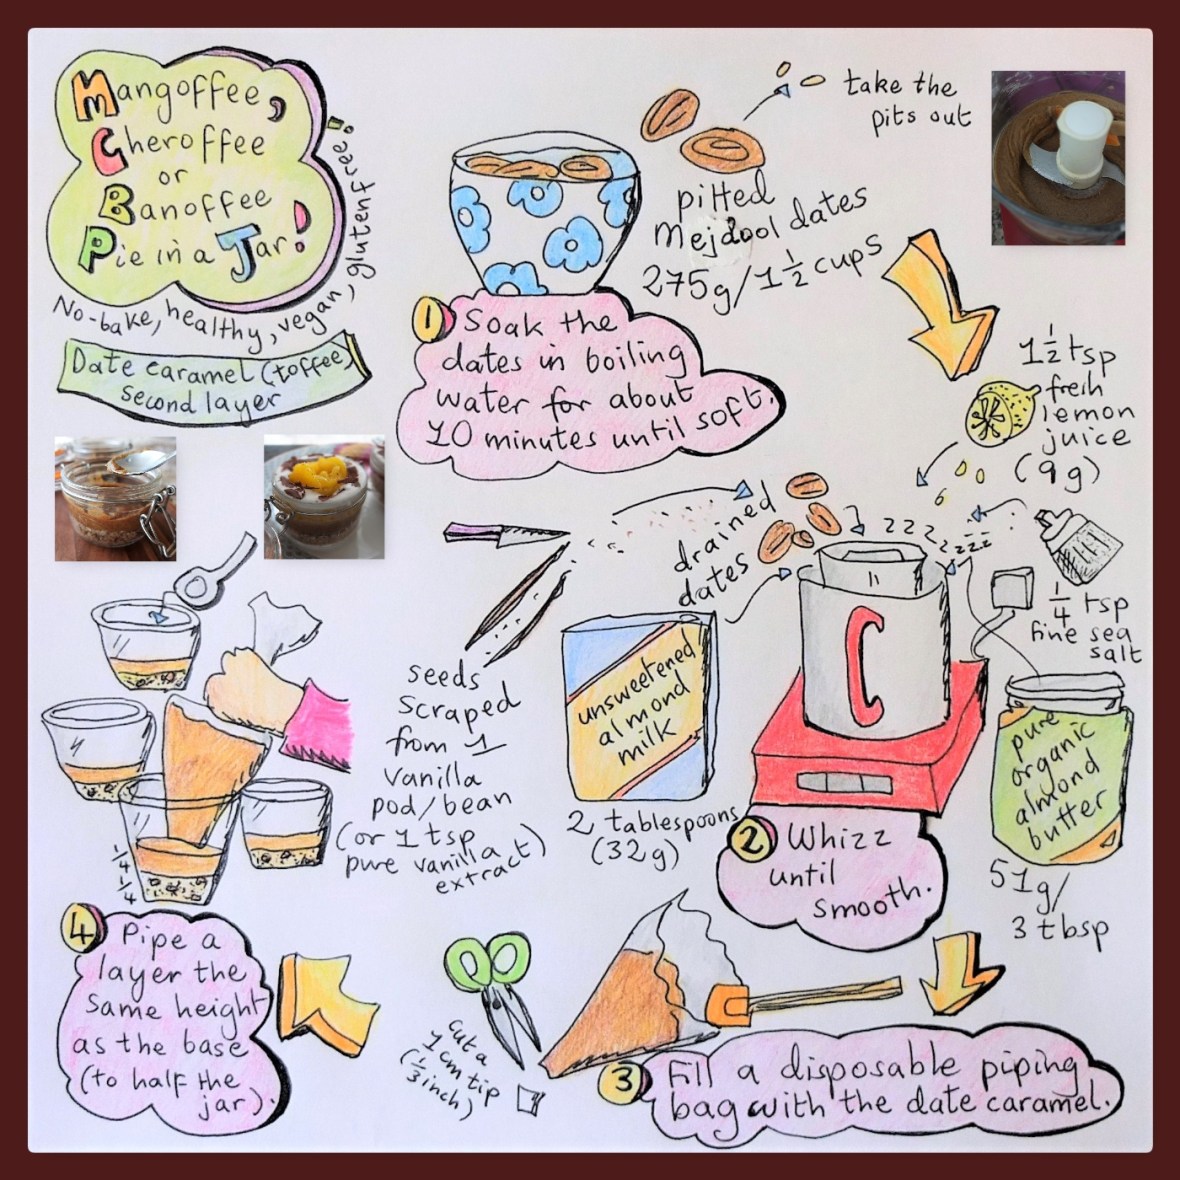 Mangoffee,
Cheroffee
or
Banoffee
Pie in a Jar!
No-bake, healthy, vegan, gluten free!
Date caramel (toffee)
second layer
take the
pits out
pitted
Mejdool dates
275g/1½ cups
1 Soak the
dates in boiling
water for about
10 minutes until soft.
1½ tsp
fresh
lemon
juice
(9g)
drained
dates
zzzzzzzz
¼ tsp
fine sea
salt
seeds
scraped
from 1
vanilla
pod/bean
(or 1 tsp
pure vanilla
extract)
unsweetened
almond
milk
2 tablespoons
(32g)
C
pure
organic
almond
butter
51g/
3 tbsp
2 Whizz
until
smooth.
cut a
1cm tip
(⅓ inch)
3 Fill a disposable piping
bag with the date caramel.
¼
¼
4 Pipe a
layer the
same height
as the base
(to half the
jar).